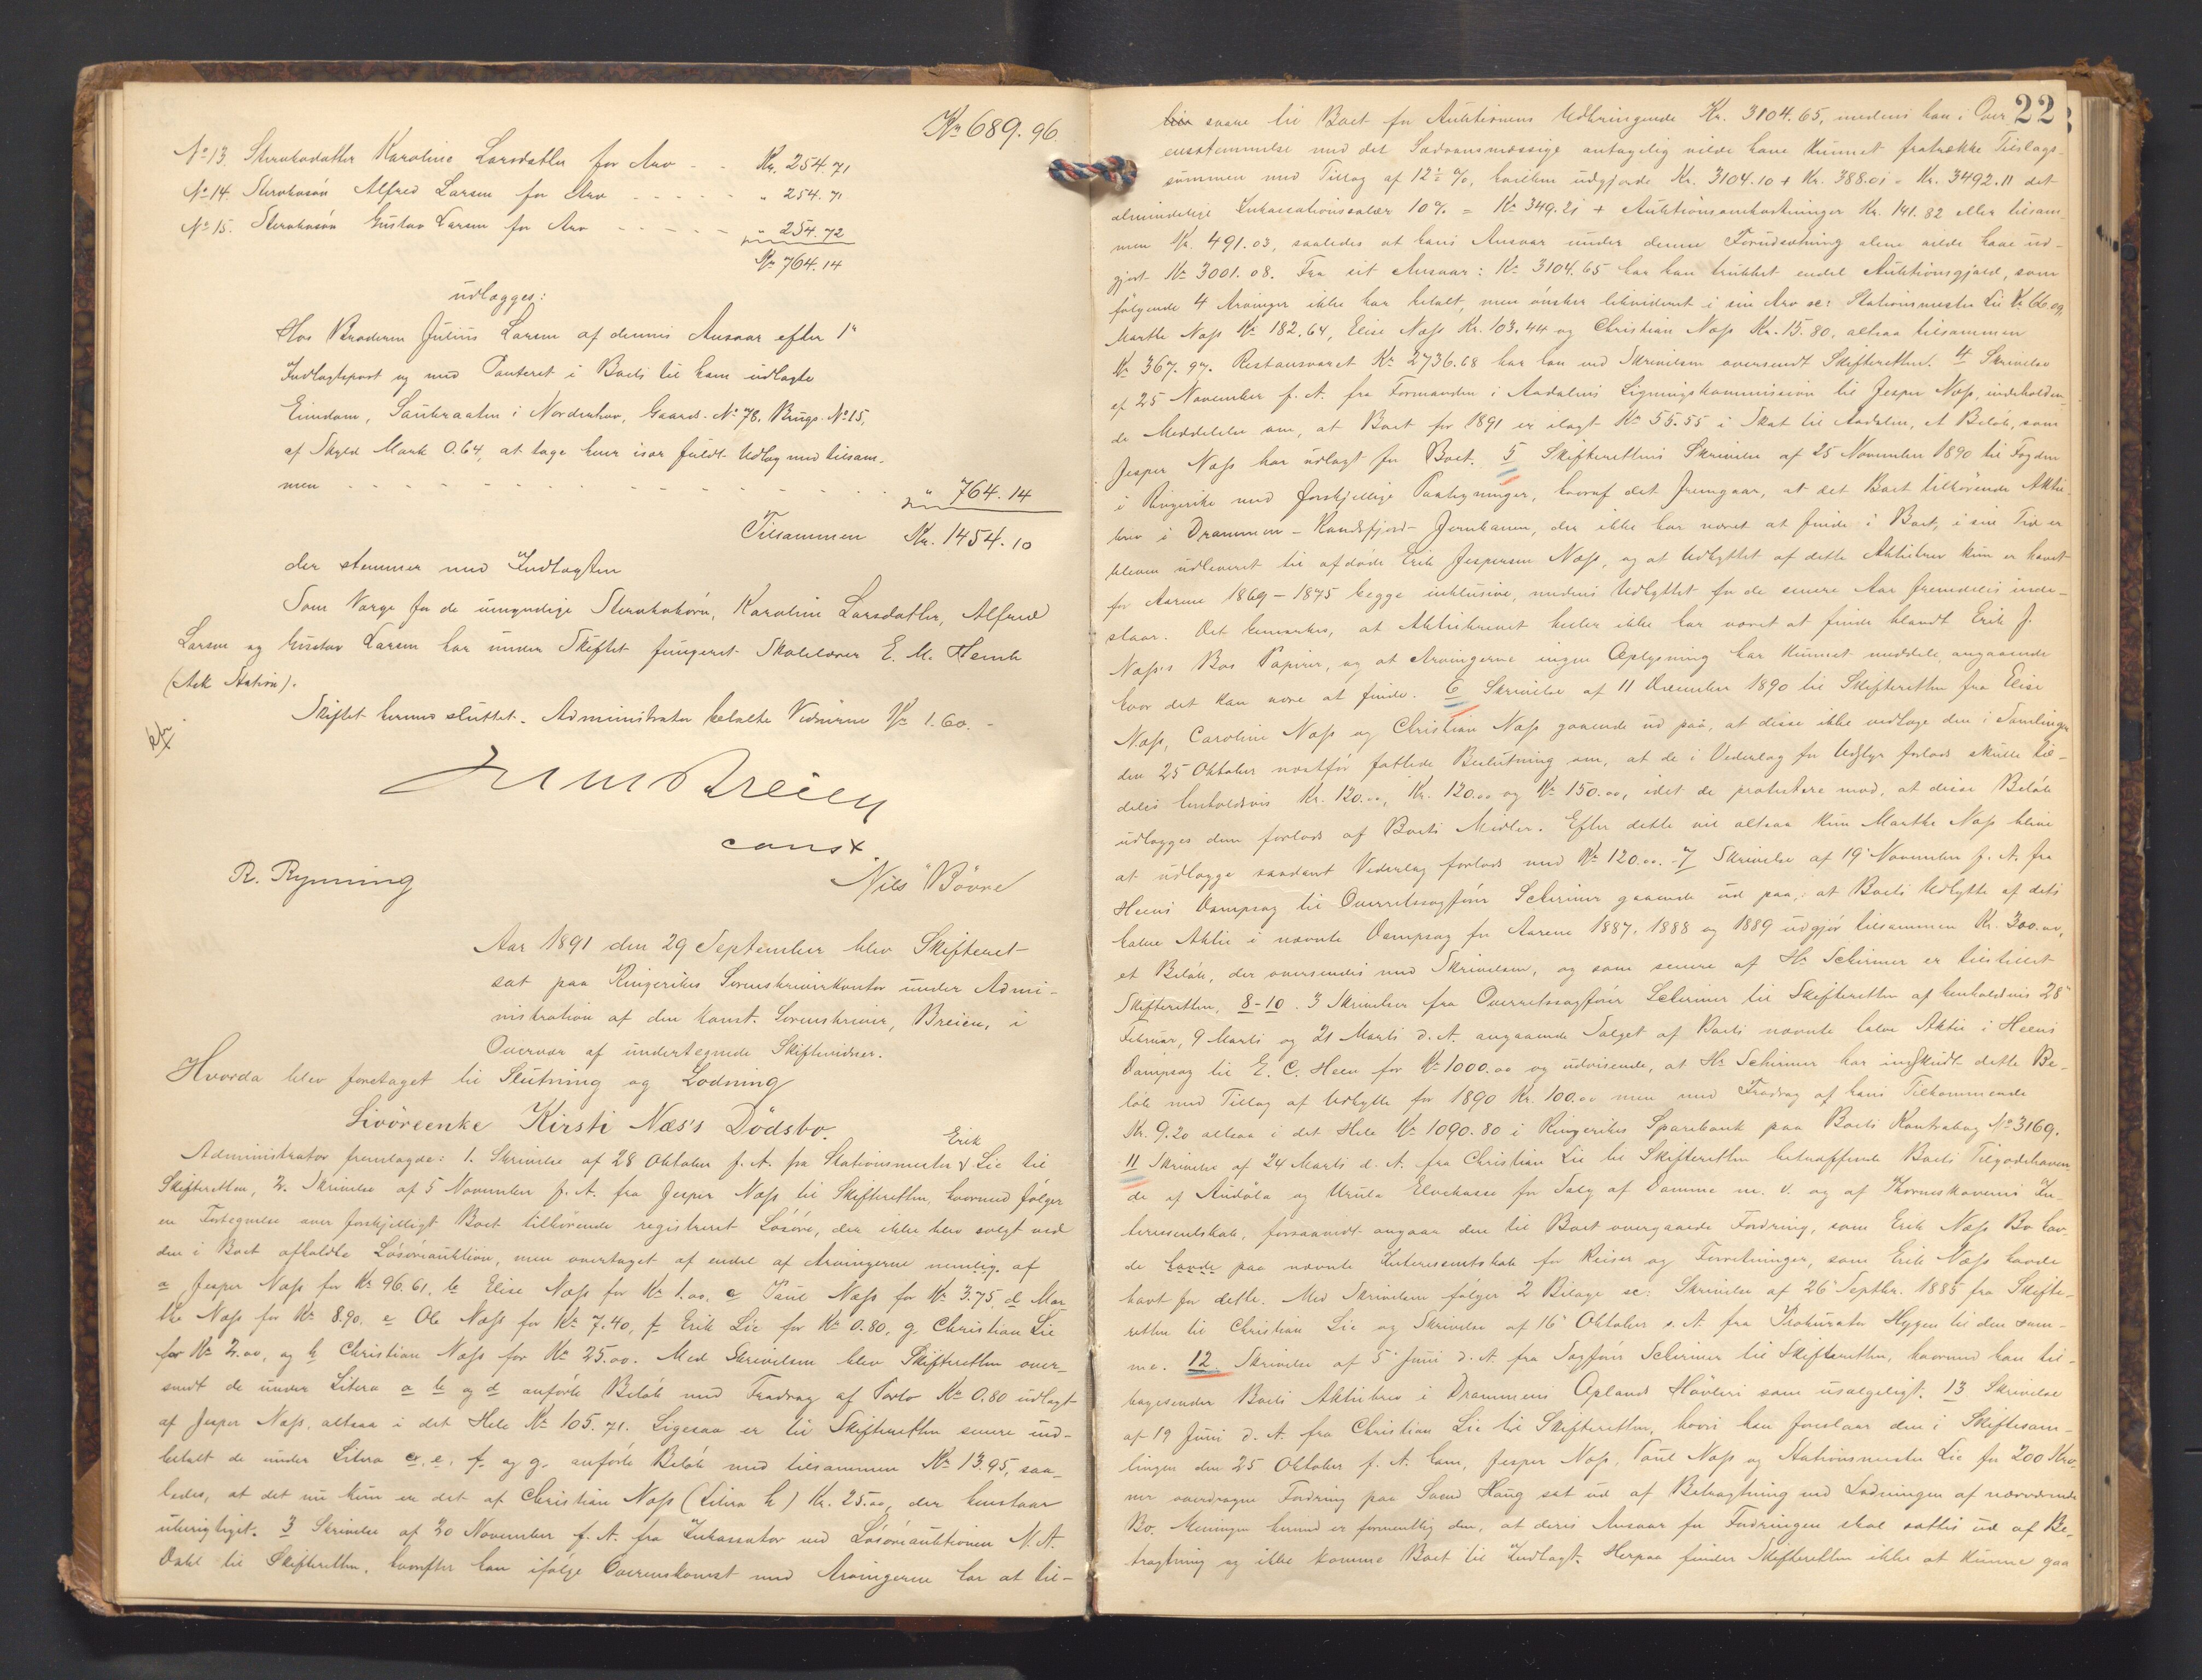 Kr. 689.96
No 13. Stervbodatter Karoline Larsdatter for Arv - - Kr. 254.71
No 14. Stervbosøn Alfred Larsen for Arv - - - - - " 254.71
No 15. Stervbosøn Gustav Larsen for Arv - - - - - " 254.72
Kr. 764.14
udlægges:
Hos Broderen Julius Larsen af dennes Ansvar efter 1ste
Indtægtspost og med Panteret i Boets til ham udlagte
Eiendom, i Norderhov, Gaards-No 78, Brugs-No 15,
af Skyld Mark 0.64, at tage hver især fuldt Udlæg med tilsam-
men - - - - - - - - - " 764.14
Tilsammen Kr. 1454.10
der stemmer med Indtægten
Som Værge for de umyndige Stervbobørn, Karoline Larsdatter, Alfred
Larsen og Gustav Larsen har under Skiftet fungeret Skolelærer E. M.
(Ask Station).
Skiftet hermed sluttet. Administrator betalte Vidnerne Kr 1.60. -
Breien
const
R. Rynning
Nils Bøvre
Aar 1891 den 29 September blev Skifteret
sat paa Ringerikes Sorenskriverkontor under Admi-
nistration af den konst. Sorenskriver, Breien, i
Overvær af undertegnede Skiftevidner.
Hvorda blev foretaget til Slutning og Lodning
Livøreenke Kirsti Næs's Dødsbo.
Administrator fremlagde: 1. Skrivelse af 28 Oktober f. A. fra Stationsmester Erik Lie til
Skifteretten, 2. Skrivelse af 5 November f. A. fra Jesper Næss til Skifteretten, hvormed følger
en Fortegnelse over forskjelligt Boet tilhørende registreret Løsøre, der ikke blev solgt ved
den i Boet afholdte Løsøreauktion, men overtaget af endel af Arvingerne nemlig: af
a Jesper Næss for Kr. 96.61, b Elise Næss for Kr. 1.00, c Paul Næss for Kr. 3.75, d Mar-
the Næss for Kr. 8.90, e Ole Næss for Kr. 7.40, f Erik Lie for Kr. 0.80, g. Christian Lie
for Kr. 2.00, og h Christian Næss for Kr. 25.00. Med Skrivelsen blev Skifteretten over-
sendt de under Litera a b og d anførte Beløb med Fradrag af Porto Kr. 0.80 udlagt
af Jesper Næss, altsaa i det Hele Kr. 105.71. Ligesaa er til Skifteretten senere ind-
betalt de under Litera c, e, f og g. anførte Beløb med tilsammen Kr. 13.95, saa-
ledes, at det nu kun er det af Christian Næss (Litra h) Kr. 25.00, der henstaar
uberigtiget. 3 Skrivelse af 20 November f. A. fra Inkassator ved Løsøreauktionen N. A.
Dahl til Skifteretten, hvorefter han ifølge Overenskomst med Arvingerne har at til-
22
svare til Boet for Auktionens Udbringende Kr. 3104.65, medens han i Over-
ensstemmelse med det Sædvansmæssige antagelig vilde have kunnet fratrække Tilslags-
summen med Tillæg af 12½ %, hvilken udgjorde Kr. 3104.10 + Kr. 388.01 = Kr. 3492.11 det
almindelige Inkassationssalær 10 % = Kr. 349.21 + Auktionsomkostninger Kr. 141.82 eller tilsam-
men Kr. 491.03, saaledes at hans Ansvar under denne Forudsætning alene vilde have ud-
gjort Kr. 3001.08. Fra sit Ansvar: Kr. 3104.65 har han trukket endel Auktionsgjæld, som
følgende 4 Arvinger ikke har betalt, men ønsker likvideret i sin Arv sc: Stationsmester Lie Kr. 66.09,
Marthe Næss Kr. 182.64, Elise Næss Kr. 103.44 og Christian Næss Kr. 15.80, altsaa tilsammen
Kr. 367.97. Restansvaret Kr. 2736.68 har han ved Skrivelsen oversendt Skifteretten. 4 Skrivelse
af 25 November f. A. fra Formanden i Aadalens Ligningskommission til Jesper Næss, indeholden-
de Meddelelse om, at Boet for 1891 er ilagt Kr. 55.55 i Skat til Aadalen, et Beløb, som
Jesper Næss har udlagt for Boet. 5 Skifterettens Skrivelse af 25 November 1890 til Fogden
i Ringerike med forskjellige Paategninger, hvoraf det fremgaar, at det Boet tilhørende Aktie-
brev i Drammen-Randsfjord-Jernbanen, der ikke har været at finde i Boet, i sin Tid er
bleven udleveret til afdøde Erik Jespersen Næss, og at Udbyttet af dette Aktiebrev kun er hævet
for Aarene 1869-1875 begge inklusive, medens Udbyttet for de senere Aar fremdeles inde-
staar. Det bemærkes, at Aktiebrevet heller ikke har været at finde blandt Erik J.
Næss's Bos Papirer, og at Arvingerne ingen Oplysning har kunnet meddele angaaende
hvor det kan være at finde. 6 Skrivelse af 11 December 1890 til Skifteretten fra Elise
Næss, Caroline Næss og Christian Næss gaaende ud paa, at disse ikke vedtage den i Samlingen
den 25 Oktober næstfør fattede Beslutning om, at de i Vederlag for Udstyr forlods skulle til-
deles henholdsvis Kr. 120.00, Kr. 120.00 og Kr. 150.00, idet de protestere mod, at disse Beløb
udlægges dem forlods af Boets Midler. Efter dette vil altsaa kun Marthe Næss blive
at udlægge saadant Vederlag forlods med Kr. 120.00. 7 Skrivelse af 19 November f. A. fra
Heens Dampsag til Overretssagfører Schirmer gaaende ud paa, at Boets Udbytte af dets
halve Aktie i nævnte Dampsag for Aarene 1887, 1888 og 1889 udgjør tilsammen Kr. 300.00,
et Beløb, der oversendes med Skrivelsen, og som senere af Hr. Schirmer er tilstillet
Skifteretten, 8-10. 3 Skrivelser fra Overretssagfører Schirmer til Skifteretten af henholdsvis 28
Februar, 9 Marts og 21 Marts d. A. angaaende Salget af Boets nævnte halve Aktie i Heens
Dampsag til E. C. Heen for Kr. 1000.00 og udvisende, at Hr. Schirmer har indskudt dette Be-
løb med Tillæg af Udbytte for 1890 Kr. 100.00 men med Fradrag af hans Tilkommende
Kr. 9.20 altsaa i det Hele Kr. 1090.80 i Ringerikes Sparebank paa Boets Kontrabog No 3169.
11 Skrivelse af 24 Marts d. A. fra Christian Lie til Skifteretten betræffende Boets Tilgodehaven-
de af og Urula Elvekasse for Salg af Damme m. v. og af In-
teressentskab, forsaavidt angaar den til Boet overgaaede Fordring, som Erik Næss Bo hav-
de havde paa nævnte Interessentskab for Reiser og Forretninger, som Erik Næss havde
havt for dette. Med Skrivelsen følger 2 Bilage sc: Skrivelse af 26 Septbr. 1885 fra Skifte-
retten til Christian Lie og Skrivelse af 16 Oktober s. A. fra Prokurator Hygen til den sam-
me. 12. Skrivelse af 5 Juni d. A. fra Sagfører Schirmer til Skifteretten, hvormed han til-
bagesender Boets Aktiebrev i Drammens Oplands Høvleri som usælgeligt. 13 Skrivelse
af 19 Juni d. A. fra Christian Lie til Skifteretten, hvori han foreslaar den i Skiftesam-
lingen den 25 Oktober f. A. ham, Jesper Næss, Paul Næss og Stationsmester Lie for 200 Kro-
ner overdragne Fordring paa Svend Haug sat ud af Betragtning ved Lodningen af nærværende
Bo. Meningen hermed er formentlig den, at deres Ansvar for Fordringen skal sættes ud af Be-
tragtning og ikke komme Boet til Indtægt. Herpaa finder Skifteretten ikke at kunne gaa